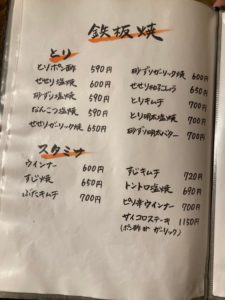 鉄板焼
とり
とりポン酢 590円
せせり塩焼 600円
砂ずり塩焼 590円
なんこつ塩焼 590円
せせりガーリック焼 650円
砂ずりガーリック焼 600円
せせりゆずこしょう 650円
とりキムチ 700円
とり明太塩焼 700円
砂ずり明太バター 700円
スタミナ
ウインナー 600円
すじ焼 650円
ぶたキムチ 700円
すじキムチ 720円
トントロ塩焼 690円
ピリ辛ウインナー 700円
サイコロステーキ 1150円
(ポン酢 or ガーリック)